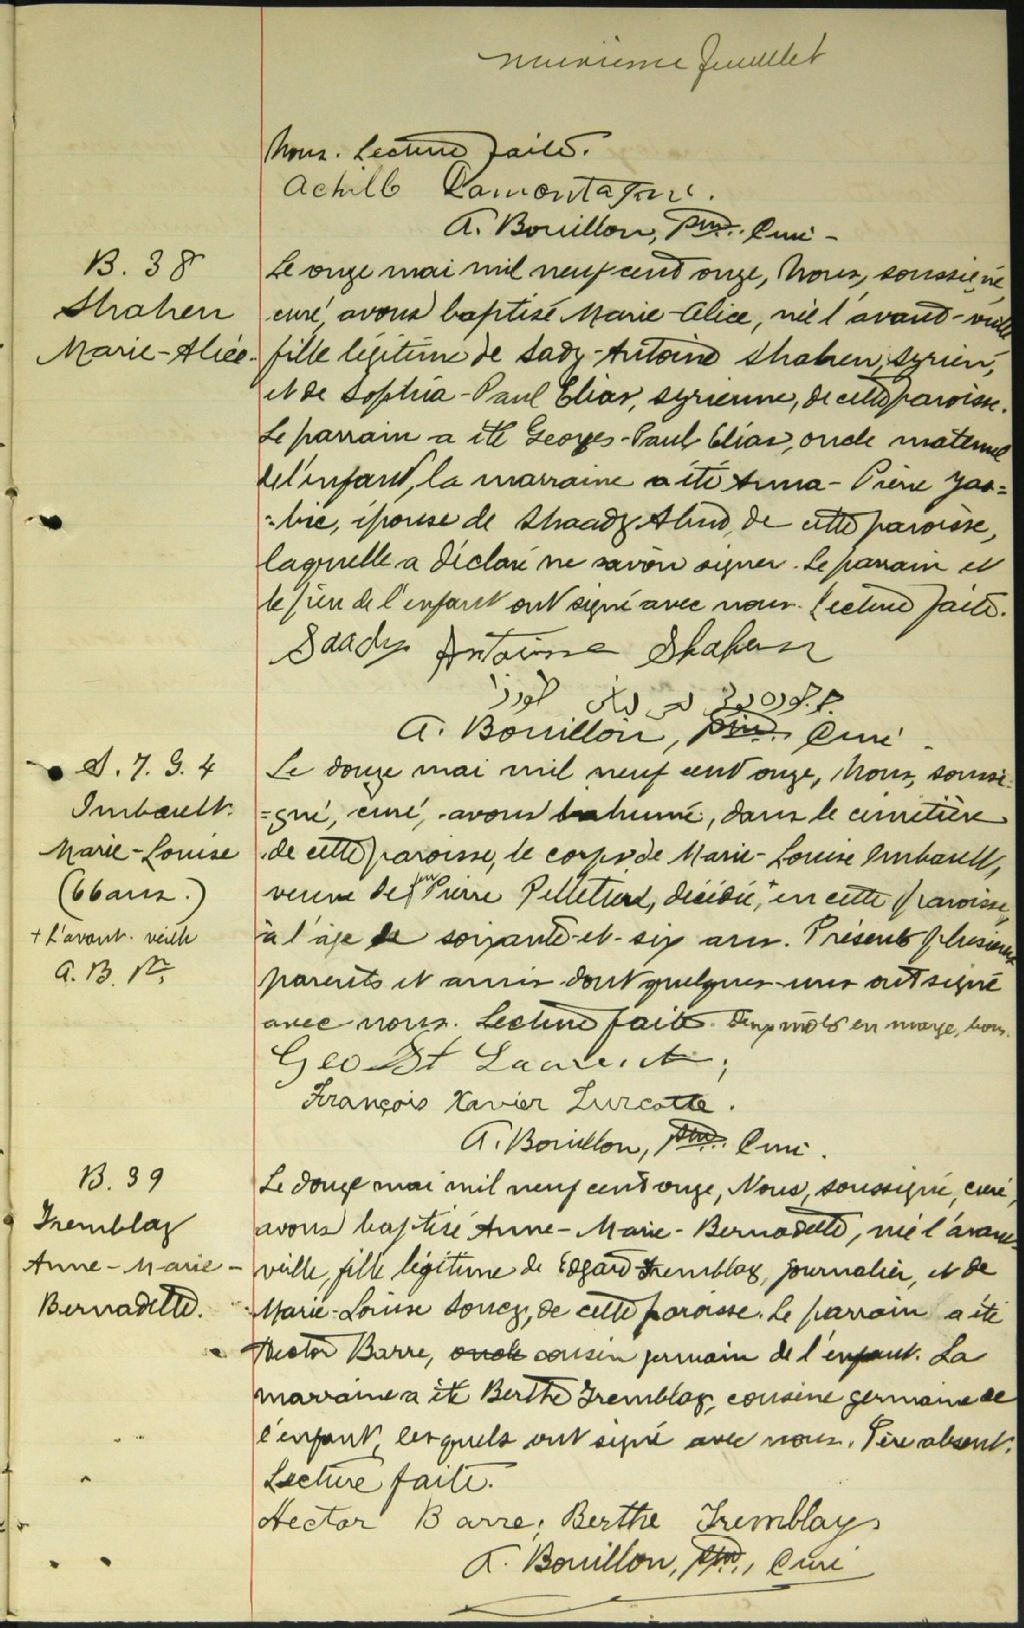 neuvième feuillet
Nous. Lecture faite.
Achille Lamontagne.
A. Bouillon, Ptre. Curé -
B. 38
Shahen
Marie-Alice.
Le onze mai mil neuf cent onze, Nous, soussigné,
curé, avons baptisé Marie-Alice, née l'avant-veille
fille légitime de Sady-Antoine Shahen, syrien,
et de Sophia-Paul Elias, syrienne, de cette paroisse.
Le parrain a été Georges-Paul Elias, oncle maternel
de l'enfant, la marraine a été Anna-Pierre Yas=
=bec, épouse de Shaady Abud, de cette paroisse,
laquelle a déclaré ne savoir signer. Le parrain et
le père de l'enfant ont signé avec nous. Lecture faite.
Saady Antoine Shahen
A. Bouillon, Ptre. Curé -
S. 7. G. 4
Imbeault.
Marie-Louise
(66 ans.)
+ L'avant-veille
A. B. Ptre
Le douze mai mil neuf cent onze, Nous, soussi-
=gné, curé, avons inhumé, dans le cimetière
de cette paroisse, le corps de Marie-Louise Imbeault,
veuve de feu Pierre Pelletier, décédée, + en cette paroisse,
à l'âge de soixante-et-six ans. Présents plusieurs
parents et amis dont quelques-uns ont signé
avec nous. Lecture faite. Deux mots en marge, bons.
Geo St Laurent;
François Xavier Turcotte.
A. Bouillon, Ptre. Curé.
B. 39
Tremblay
Anne-Marie-
Bernadette.
Le douze mai mil neuf cent onze, Nous, soussigné, curé,
avons baptisé Anne-Marie-Bernadette, née l'avant-
veille, fille légitime de Edgard Tremblay, journalier, et de
Marie-Louise Soucy, de cette paroisse. Le parrain a été
Hector Barre, oncle cousin germain de l'enfant. La
marraine a été Berthe Tremblay, cousine germaine de
l'enfant, lesquels ont signé avec nous. Père absent.
Lecture faite.
Hector Barre; Berthe Tremblay
A. Bouillon, Ptre., Curé